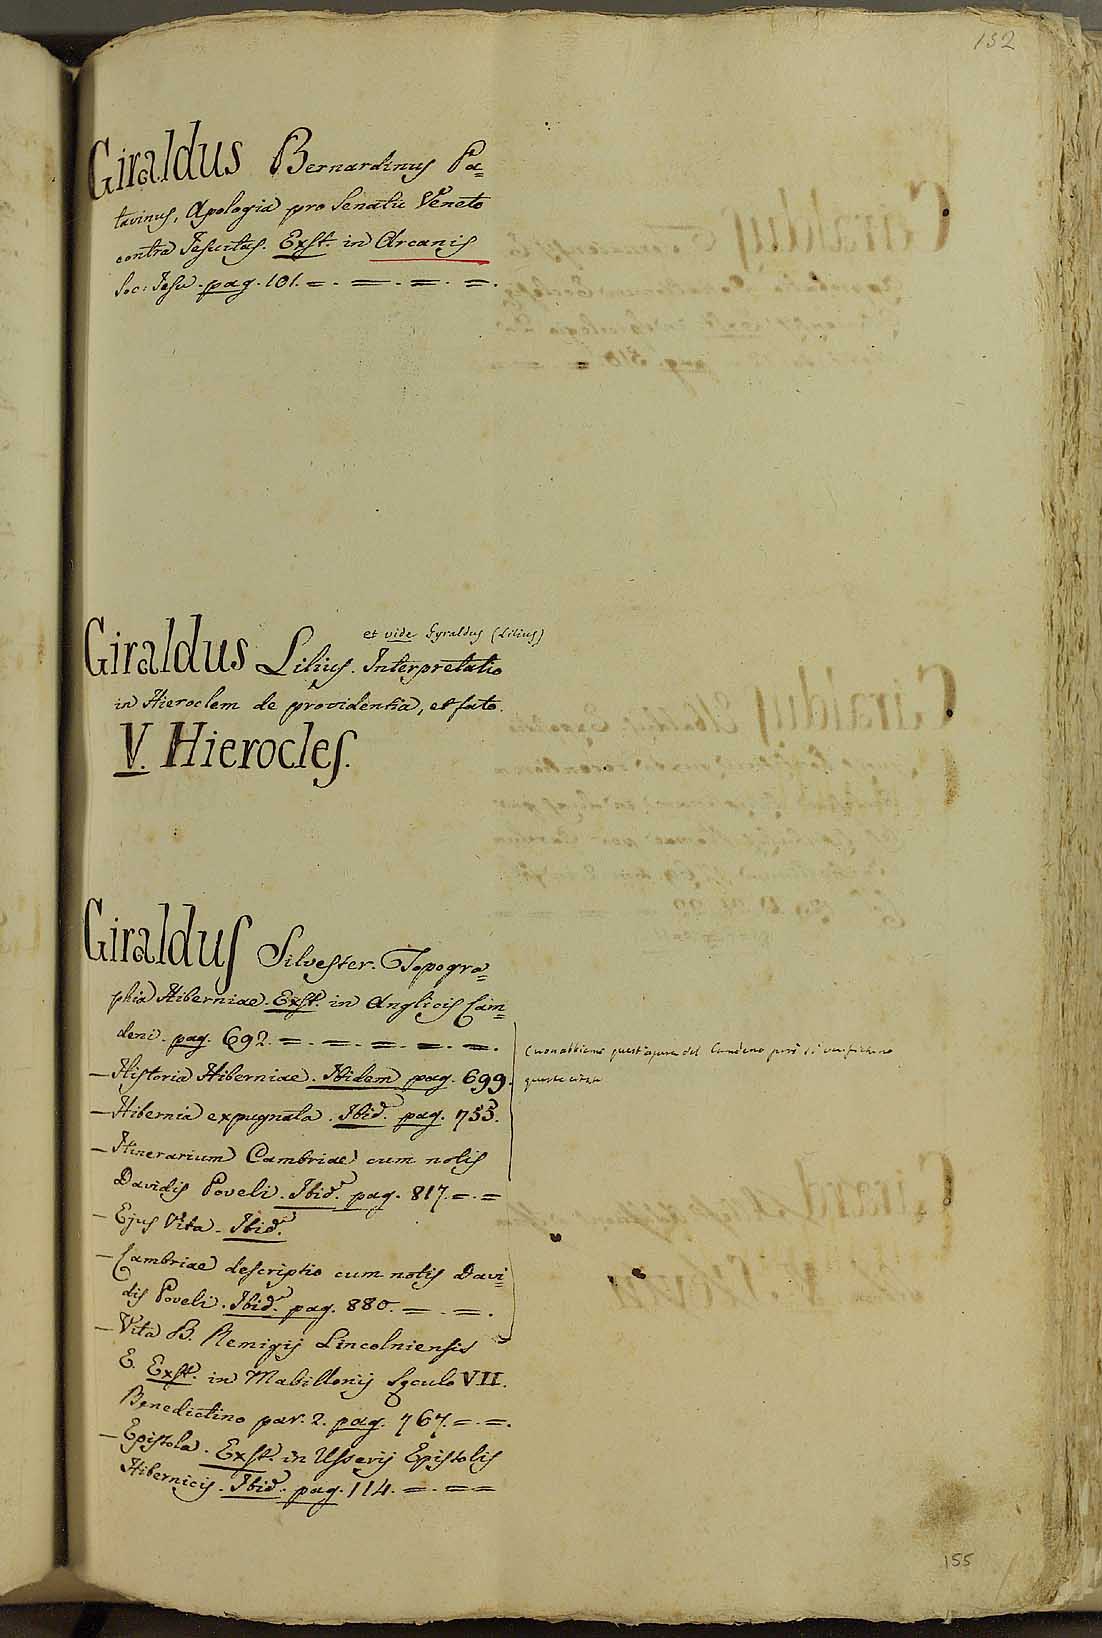 152
Giraldus Bernardinus Pa=
tavinus, Apologia pro Senatu Veneto
contra Jesuitas. Exst. in Arcanis
Soc: Jesu. pag. 101. = . = . = . = .
et vide Gyraldus (Lilius)
Giraldus Lilius. Interpretatio
in Hieroclem de providentia, et fato.
V. Hierocles.
Giraldus Silvester. Topogra=
phia Hiberniae. Exst. in Anglicis Cam=
deni. pag. 692. = . = . = . = . = .
(non abbiamo quest'opera del Camdeno però si verifichino
– Historia Hiberniae. Ibidem pag. 699.
queste
– Hibernia expugnata. Ibid. pag. 755.
– Itinerarium Cambriae cum notis
Davidis Poveli. Ibid. pag. 817. = . =
– Ejus Vita. Ibid.
– Cambriae descriptio cum notis Davi=
dis Poveli. Ibid. pag. 880. = . = .
– Vita B. Remigij Lincolniensis
E. Exst. in Mabillonij Sęculo VII.
Benedictino par. 2. pag. 767. = . = .
– Epistola. Exst. in Usserij Epistolis
Hibernicis. Ibid. pag. 114. = . = =
155